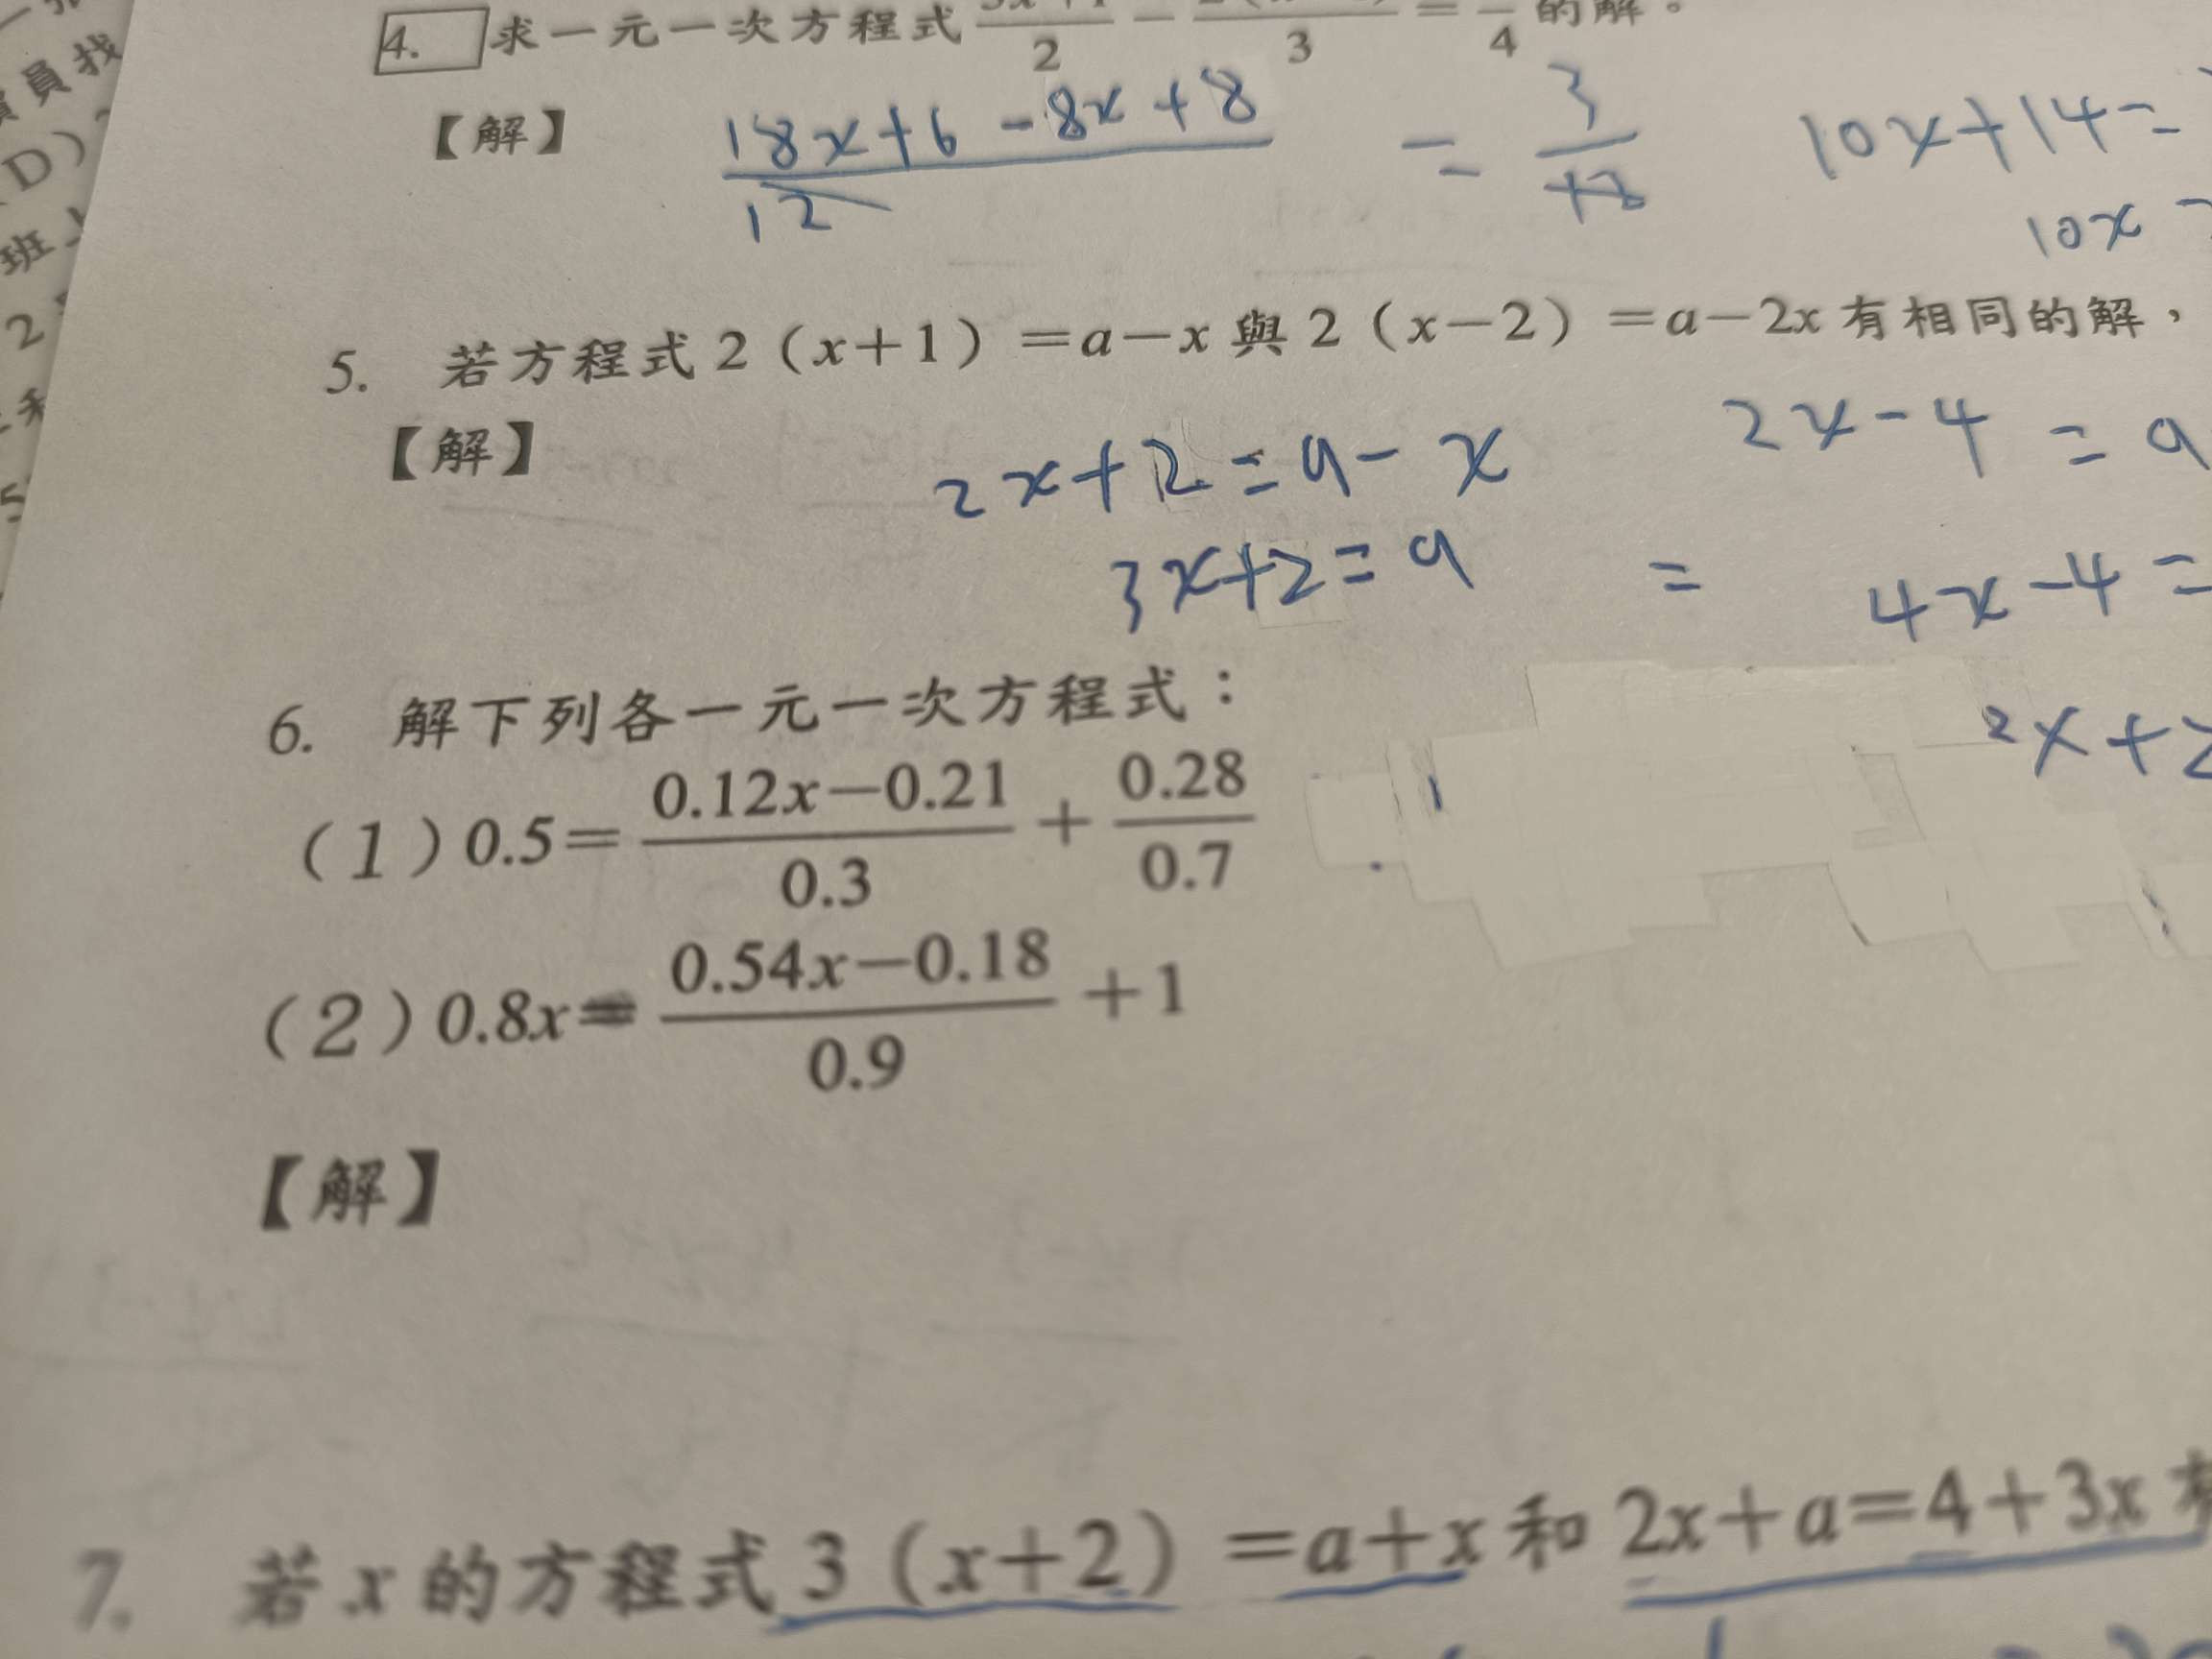 員找
D)
班
2
5
4. 求一元一次方程式 —/2 − —/3 = —/4 的解。
【解】 (18x+6-8x+8)/12 = 3/12 10x+14=
10x
5. 若方程式2(x+1)=a−x與2(x−2)=a−2x有相同的解，
【解】 2x+2=a-x 2x-4=a
3x+2=a = 4x-4=
2x+2
6. 解下列各一元一次方程式：
(1)0.5=(0.12x−0.21)/0.3+0.28/0.7
(2)0.8x=(0.54x−0.18)/0.9+1
【解】
7. 若x的方程式3(x+2)=a+x和2x+a=4+3x